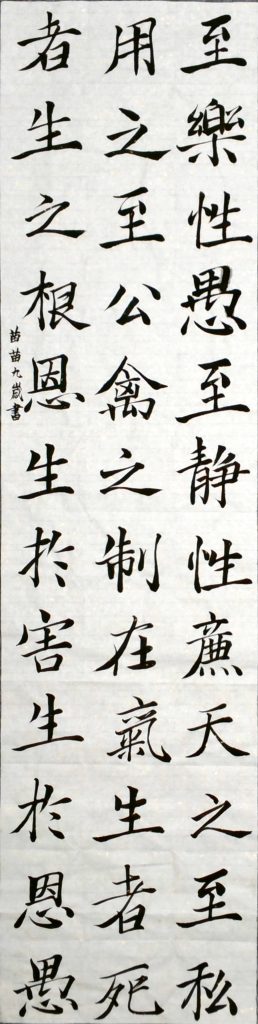 至樂性愚至静性廉天之至私
用之至公禽之制在氣生者死
者生之根恩生於害生於恩愚
苗苗九歲書